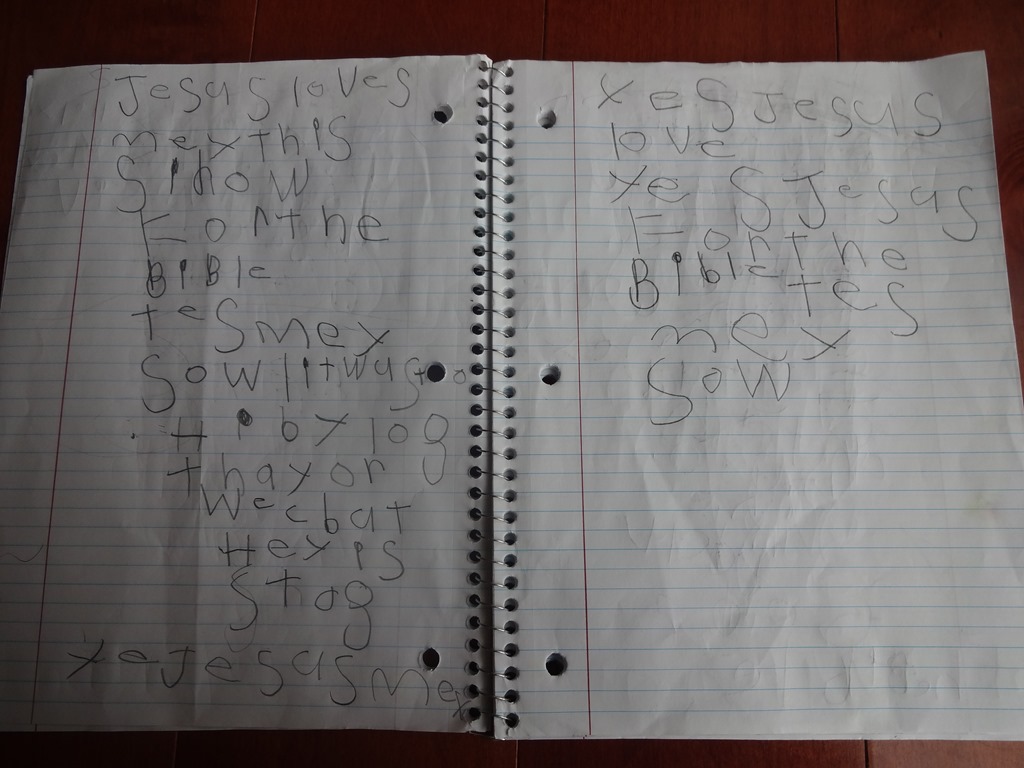 Jesus loves
mex this
S i know
For the
BiBle
tes mex
Sow litwus to
Hi by log
thay or
Wec bat
Hey is
Stog
Ye Jesus mex
Yes Jesus
love
Yes Jesus
For the
Bible tes
mex
Sow